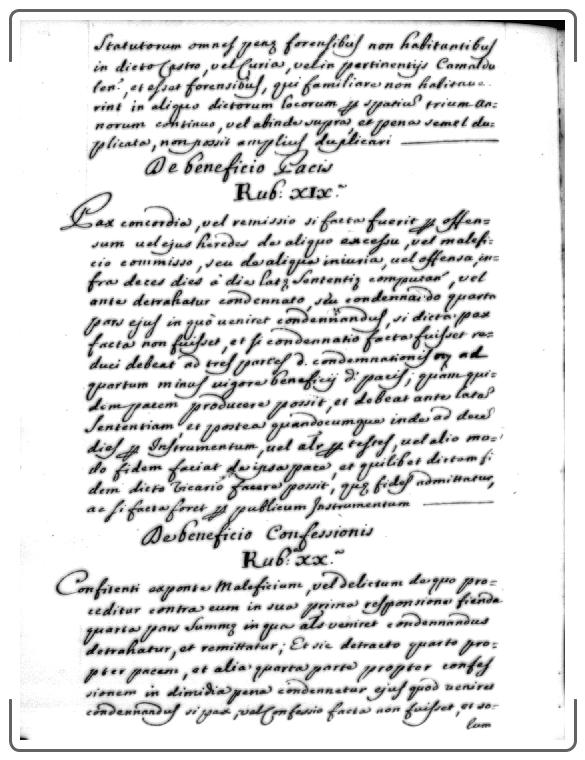 Statutorum omnes penæ forensibus non habitantibus
in dicto Castro, vel Curia, vel in pertinentijs Camaldu
len.^s, et esset forensibus, qui familiare non habitave-
rint in aliquo dictorum locorum p spatiũ trium An-
norum continuo, vel abinde supra, et pena semel du-
plicata, non possit amplius duplicari
De beneficio Pacis
Rub: XIX.^a
Pax concordia, vel remissio si facta fuerit p offen-
sum vel ejus heredes de aliquo excessu, vel malefi-
cio commisso, seu de aliqua iniuria, vel offensa, in-
fra deces dies à die latæ Sententiæ computañ, vel
ante detrahatur condennato, seu condennando quarta
pars ejus in quò veniret condennandus, si dicta pax
facta non fuisset, et si condennatio facta fuisset re-
duci debeat ad tres partes d. condemnationis ad
quartum minus vigore beneficij d.^i pacis; quam qui-
dem pacem producere possit, et debeat ante latã
Sententiam, et postea quandocumque inde ad decẽ
dies p Instrumentum, vel als p testes, vel alio mo-
do fidem faciat de ipsa pace, et quilibet dictam fi-
dem dicto Vicario facere possit, quæ fides admittatur,
ac si facta foret p publicum Instrumentum
De beneficio Confessionis
Rub: XX.^a
Confitenti exponte Maleficium, vel delictum de quo pro-
ceditur contra eum in sua prima responsione fienda
quarta pars Summæ in qua als veniret condennandus
detrahatur, et remittatur; Et sic detracto quarto pro-
pter pacem, et alia quarta parte propter confes
sionem in dimidia pena condennetur ejus quod veniret
condennandus si pax, vel Confessio facta non fuisset, et so-
lum